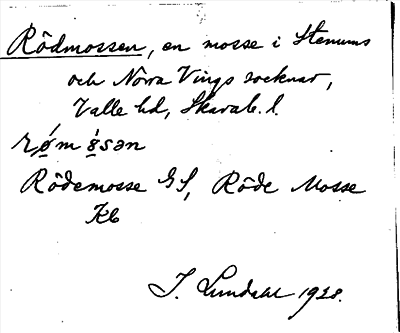 Rödmossen, en mosse i Stenums
och Norra Vings socknar,
Valle hd, Skarab. l.
rǿm ǿsən
Rödemosse GS, Röde Mosse
Kb
I. Lundahl 1928.